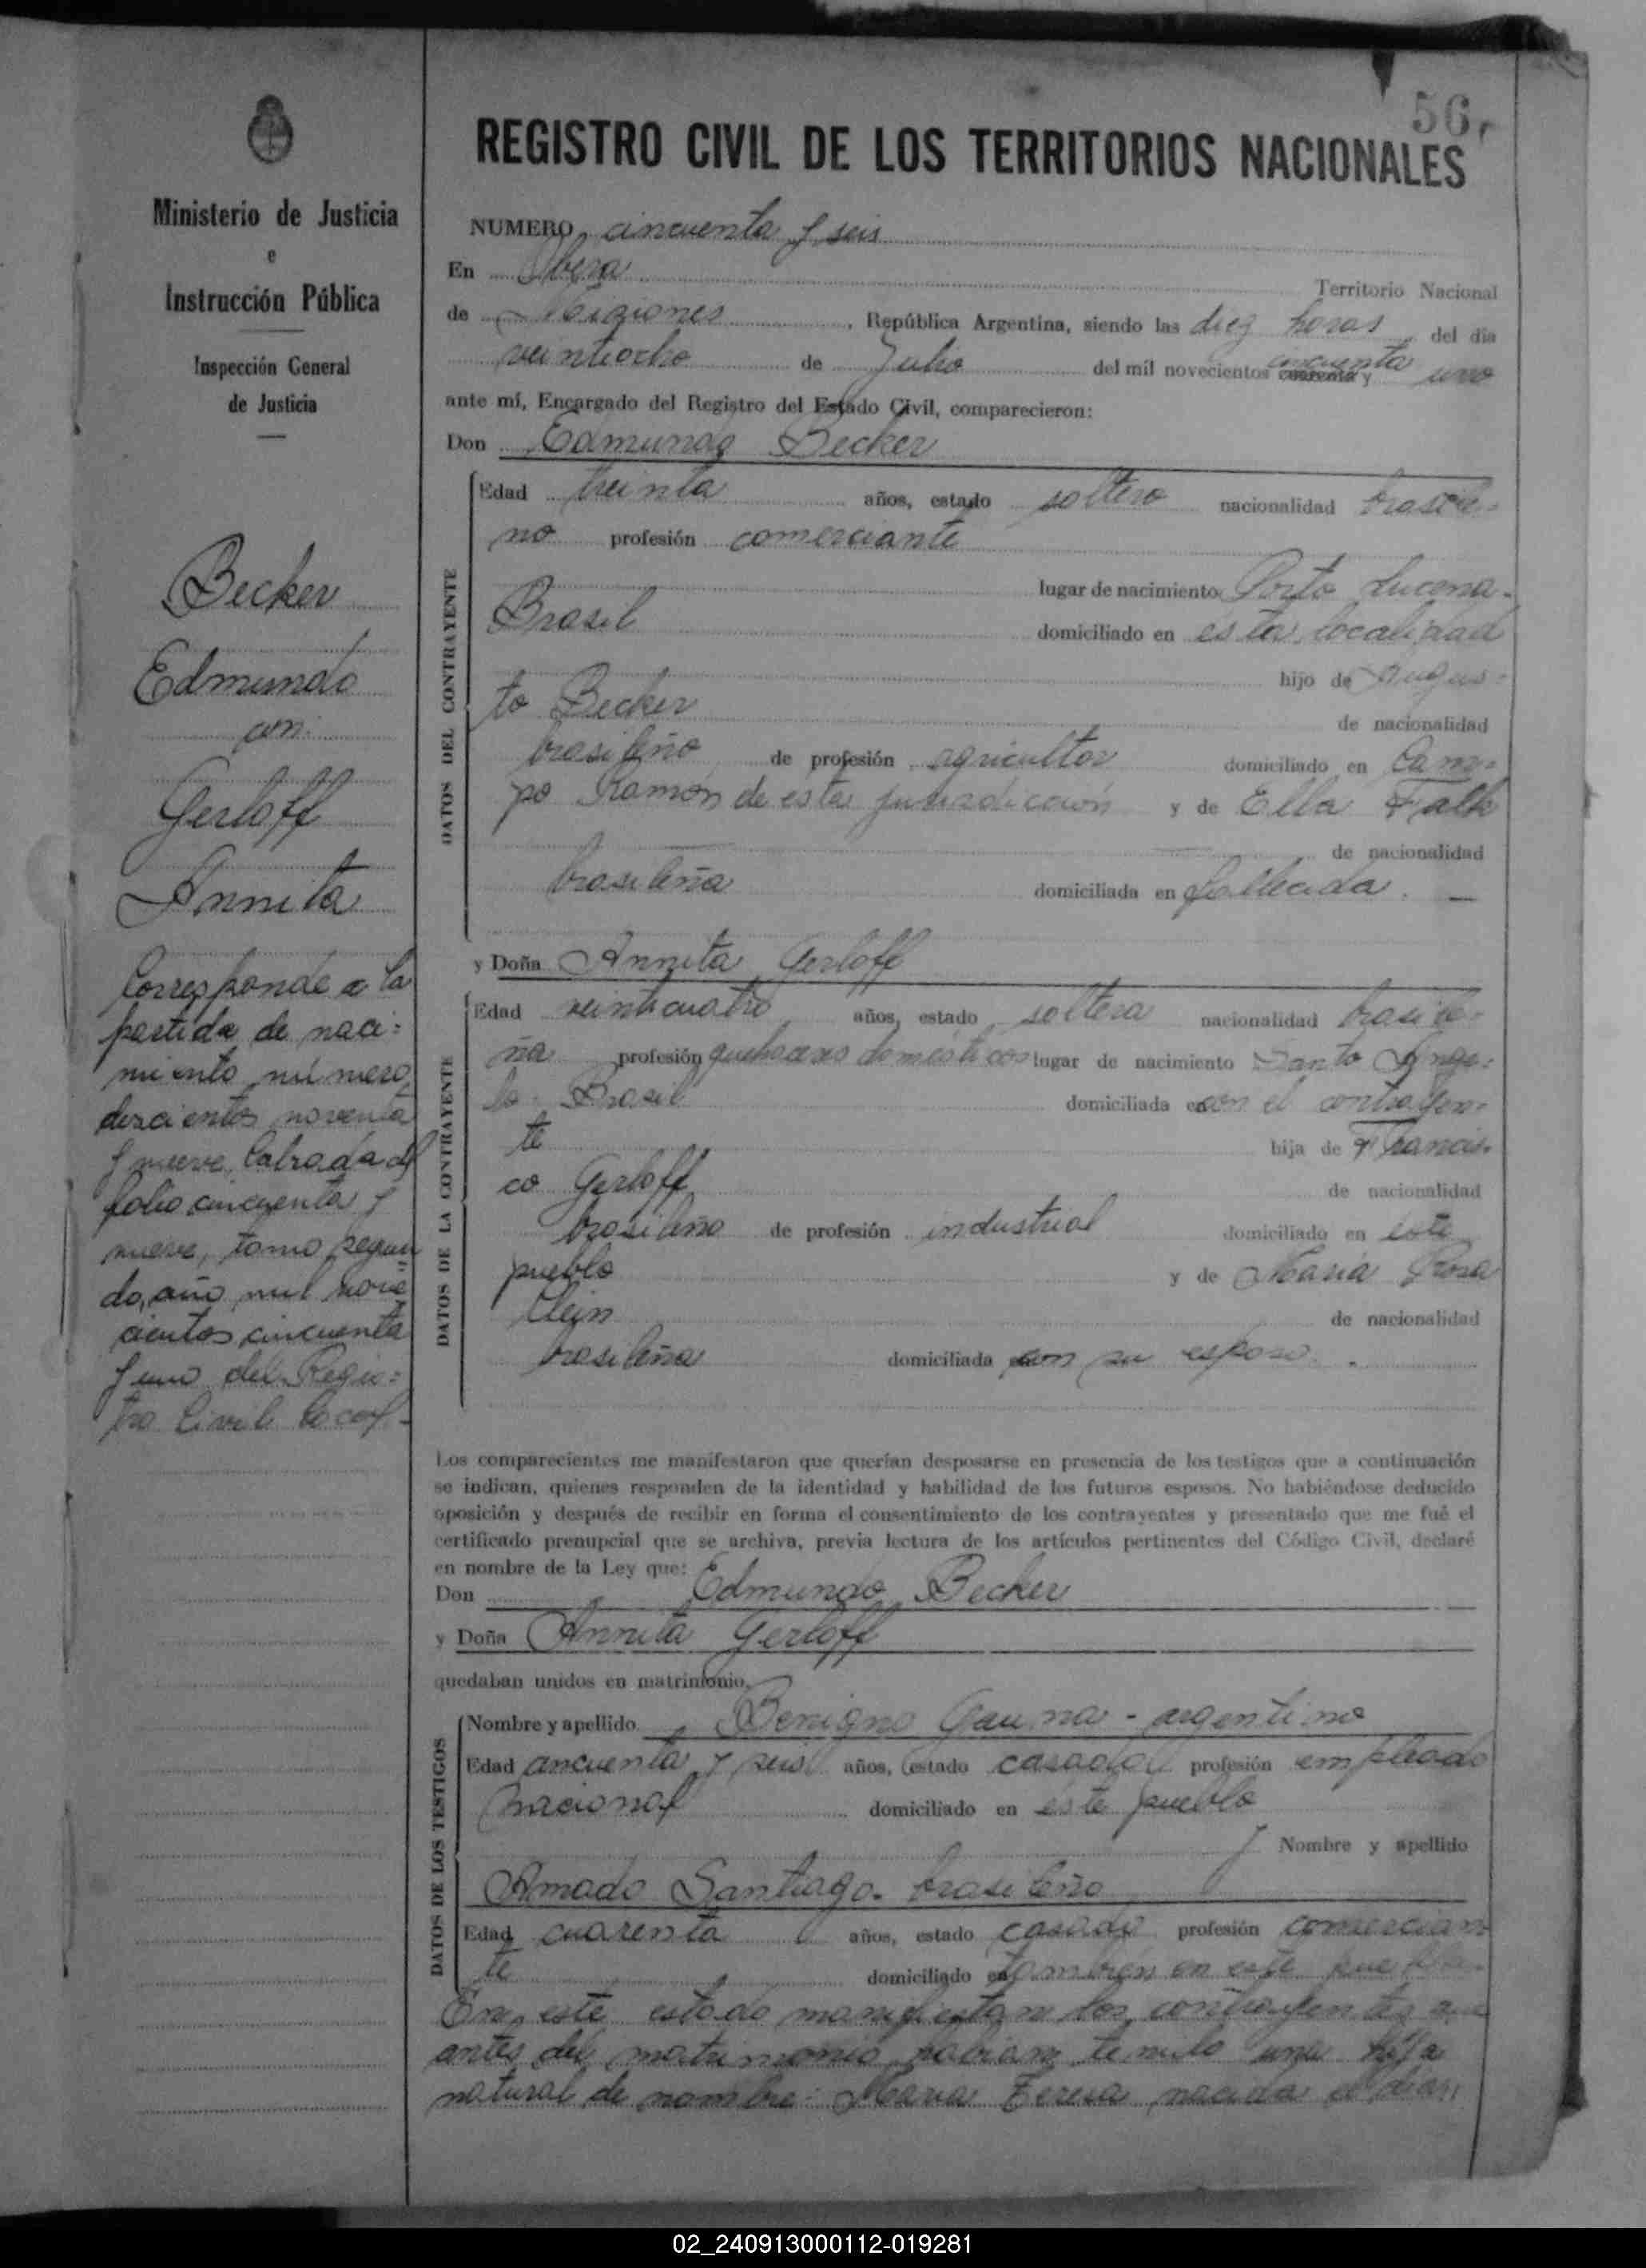 56
REGISTRO CIVIL DE LOS TERRITORIOS NACIONALES
Ministerio de Justicia
e
Instrucción Pública
Inspección General
de Justicia
NUMERO cincuenta y seis
En Obera
Territorio Nacional
de Misiones, República Argentina, siendo las diez horas del día
veintiocho de Julio del mil novecientos cincuenta y uno
ante mí, Encargado del Registro del Estado Civil, comparecieron:
Don Edmundo Becker
DATOS DEL CONTRAYENTE
Edad treinta años, estado soltero nacionalidad brasile=
no profesión comerciante
lugar de nacimiento Porto Lucena-
Brasil domiciliado en esta localidad
hijo de Augus=
to Becker de nacionalidad
brasileño de profesión agricultor domiciliado en Cam=
po Ramón de esta jurisdicción y de Ella Falk
de nacionalidad
brasileña domiciliada en fallecida. —
y Doña Annita Gerloff
DATOS DE LA CONTRAYENTE
Edad veinticuatro años, estado soltera nacionalidad brasile=
ña profesión quehaceres domésticos lugar de nacimiento Santo Ange=
lo - Brasil domiciliada en con el contrayen=
te hija de Francis-
co Gerloff de nacionalidad
brasileño de profesión industrial domiciliado en este
pueblo y de María Rosa
Clein de nacionalidad
brasileña domiciliada con su esposo. -
Los comparecientes me manifestaron que querían desposarse en presencia de los testigos que a continuación
se indican, quienes responden de la identidad y habilidad de los futuros esposos. No habiéndose deducido
oposición y después de recibir en forma el consentimiento de los contrayentes y presentado que me fué el
certificado prenupcial que se archiva, previa lectura de los artículos pertinentes del Código Civil, declaré
en nombre de la Ley que:
Don Edmundo Becker
y Doña Annita Gerloff
quedaban unidos en matrimonio.
DATOS DE LOS TESTIGOS
Nombre y apellido Benigno Gauna - argentino
Edad cincuenta y seis años, estado casado profesión empleado
nacional domiciliado en este pueblo
y Nombre y apellido
Amado Santiago - brasileño
Edad cuarenta años, estado casado profesión comercian=
te domiciliado en también en este pueblo.
En este estado manifiestan los contrayentes que
antes del matrimonio habían tenido una hija
natural de nombre: María Teresa nacida el día
Becker
Edmundo
con
Gerloff
Annita
Corresponde a la
partida de naci=
miento número
doscientos noventa
y nueve, labrada al
folio cincuenta y
nueve, tomo segun
do, año mil nove
cientos cincuenta
y uno del Regis=
tro Civil local.-
02_240913000112-019281